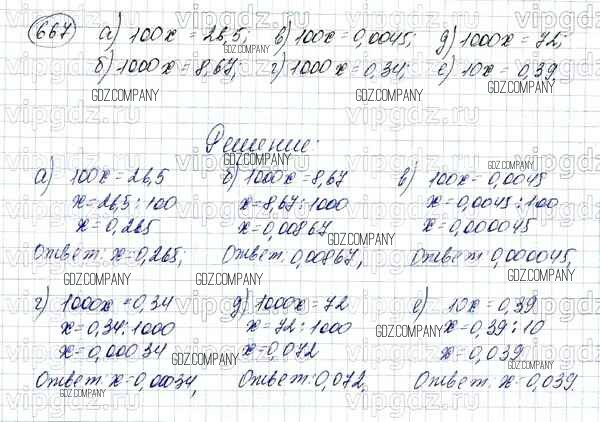 667 а) 100x = 26,5; в) 100x = 0,0045; д) 1000x = 72;
б) 1000x = 8,67; г) 1000x = 0,34; е) 10x = 0,39
Решение:
а) 100x = 26,5 б) 1000x = 8,67 в) 100x = 0,0045
x = 26,5 : 100 x = 8,67 : 1000 x = 0,0045 : 100
x = 0,265 x = 0,00867 x = 0,000045
Ответ: x = 0,265; Ответ: 0,00867, Ответ: 0,000045,
г) 1000x = 0,34 д) 1000x = 72 е) 10x = 0,39
x = 0,34 : 1000 x = 72 : 1000 x = 0,39 : 10
x = 0,00034 x = 0,072 x = 0,039
Ответ: x = 0,00034, Ответ: 0,072, Ответ: x = 0,039.
GDZ.COMPANY
vipgdz.com